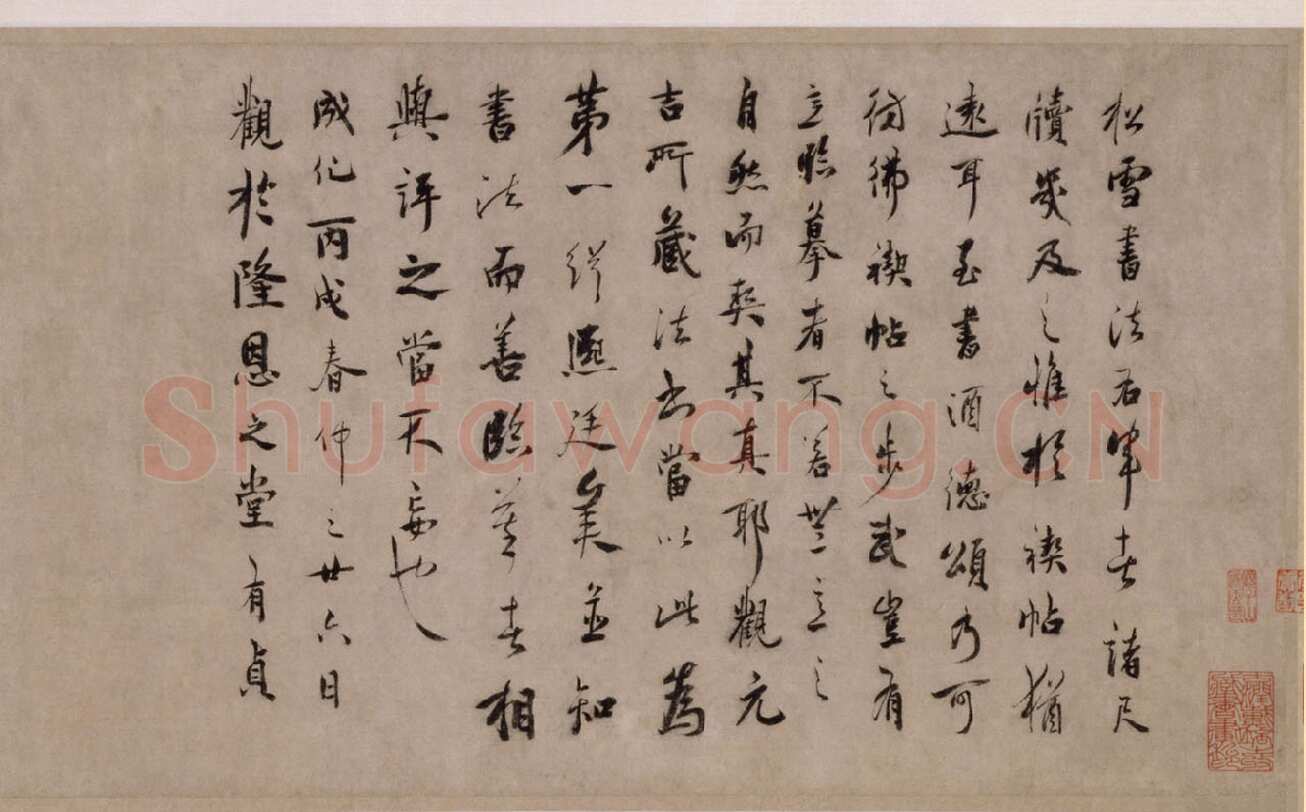 松雪書法右軍書諸尺
牘幾及之惟於禊帖猶
遠耳至書酒德頌乃可
彷彿禊帖之步武豈有
意臨摹者不若無意之
自然而契其真耶觀元
吉所藏法書當以此為
第一縉熙廷美並知
書法而善臨摹者相
與評之當不妄也
成化丙戌春仲之廿六日
觀於隆恩之堂有貞
Shufawang.CN